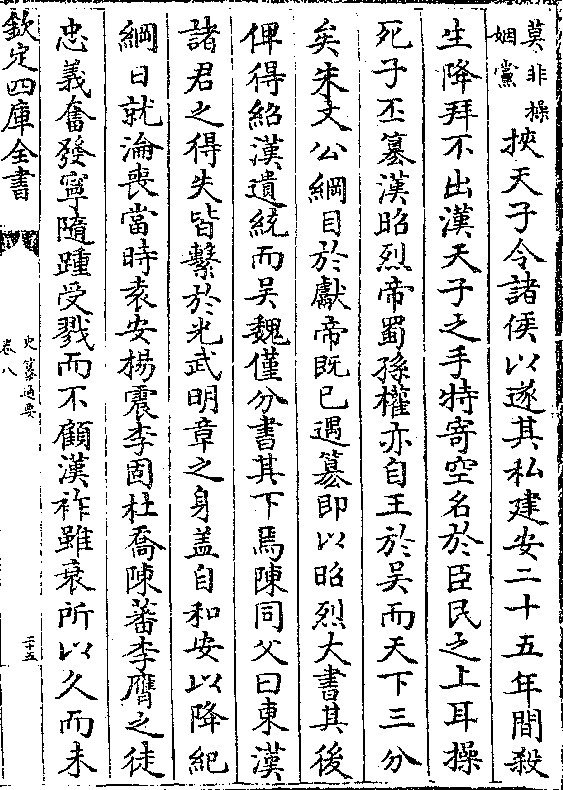 莫非操
姻黨
挾天子令諸侯以遂其私建安二十五年間殺
生降拜不出漢天子之手特寄空名於臣民之上耳操
死子丕篡漢昭烈帝蜀孫權亦自王於吳而天下三分
矣朱文公綱目於獻帝既已遇篡即以昭烈大書其後
俾得紹漢遺統而吳魏僅分書其下焉陳同父曰東漢
諸君之得失皆繫於光武明章之身盖自和安以降紀
綱日就淪喪當時袁安楊震李固杜喬陳蕃李膺之徒
忠義奮發寧隨踵受戮而不顧漢祚雖衰所以久而未
欽定四庫全書
史纂通要
卷八
二十五